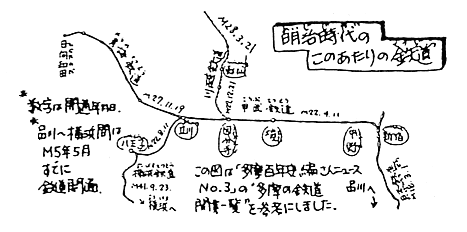 明治時代の
このあたりの鉄道
M28.3.21
川越鉄道
M27.12.21
甲武鉄道
M22.4.11
M27.11.19
立川
新宿
八王子
M22.8.11
横浜鉄道
M41.9.23.
横浜へ
品川へ
*数字は開通年月日.
*品川〜横浜間は
M5年5月
すでに
鉄道開通.
この図は“多摩百年史編さんニュース
No.3”の“多摩の鉄道
開業一覧”を参考にしました.